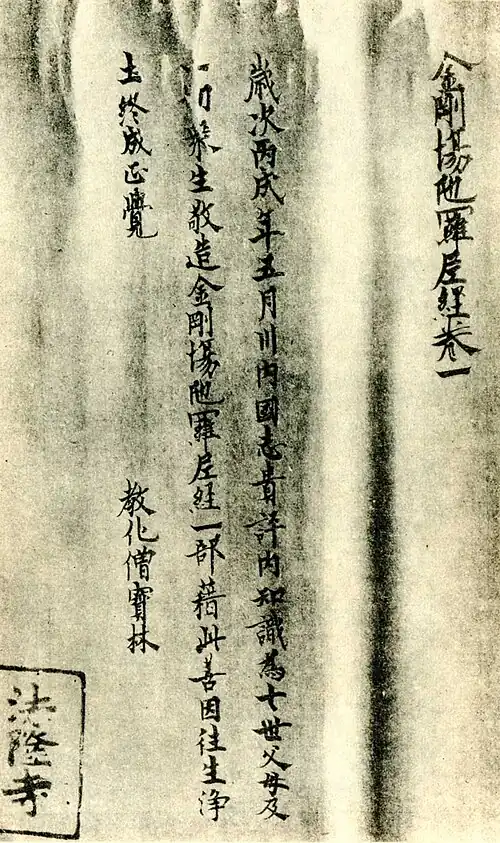 金剛場陁羅尼經卷一
歲次丙戌年五月川內國志貴評內知識為七世父母及
一切衆生敬造金剛場陁羅尼經一部藉此善因往生浄
土終成正覺
教化僧寶林
法隆寺